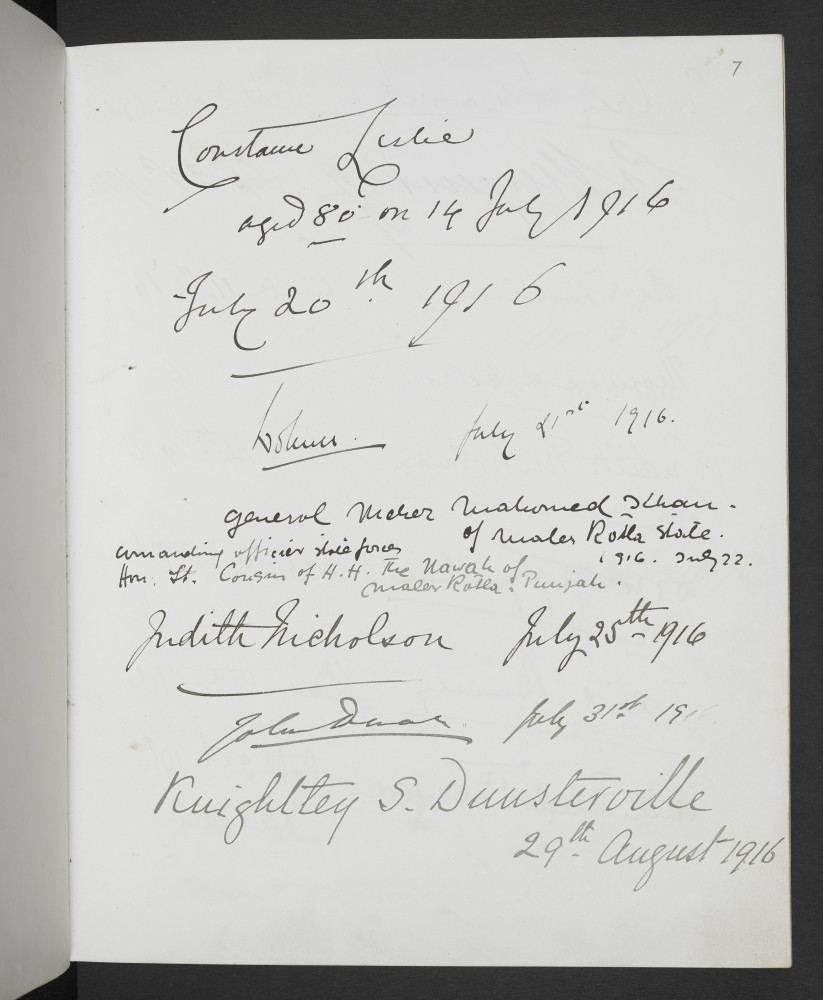 7
Constance Leslie
aged 80 on 14 July 1916
July 20th 1916
July 21st 1916.
General Meher Mahomed Khan.
of Maler Kotla State.
Commanding officier state forces
1916. July 22.
Hon. Lt. Cousin of H.H. The Nawab of
Maler Kotla. Punjab.
Judith Nicholson July 25th 1916
John July 31st 191
Knightley S. Dunsterville
29th August 1916